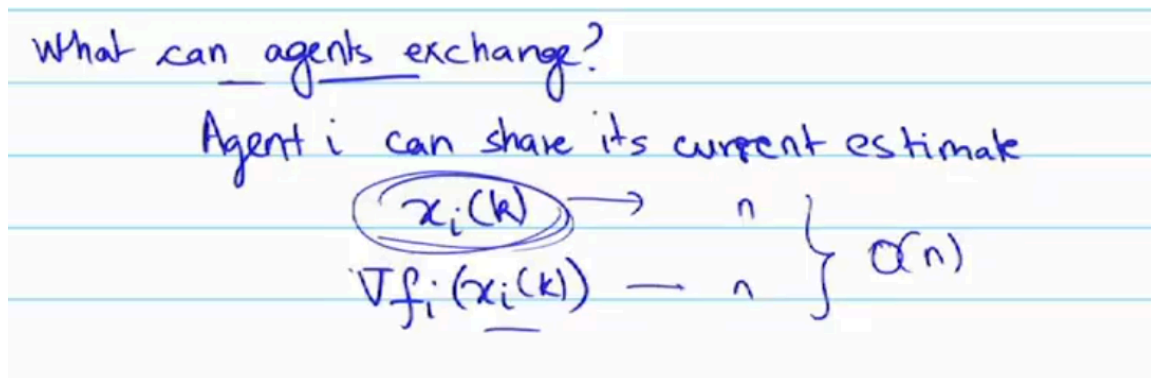 What can agents exchange?
Agent i can share its current estimate
x_i(k) → n
∇f_i(x_i(k)) — n } O(n)